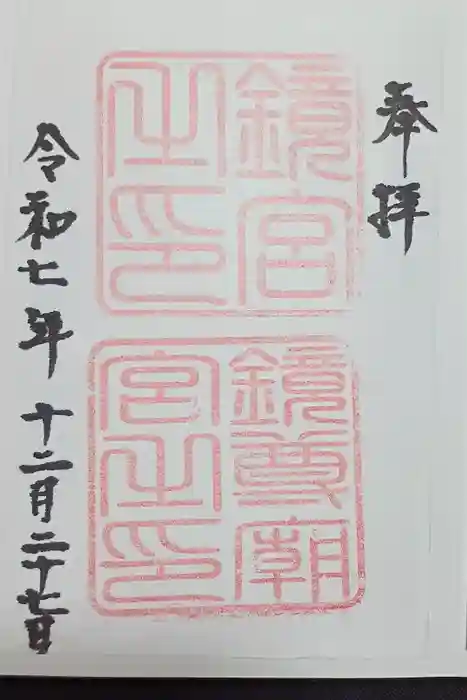 奉拝
鏡宮
之印
鏡尊廟
宮之印
令和七年十二月二十七日